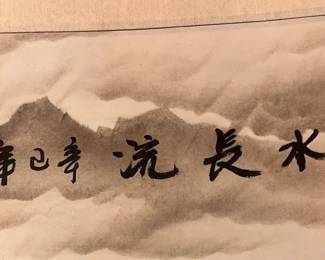 水長流辛巳年